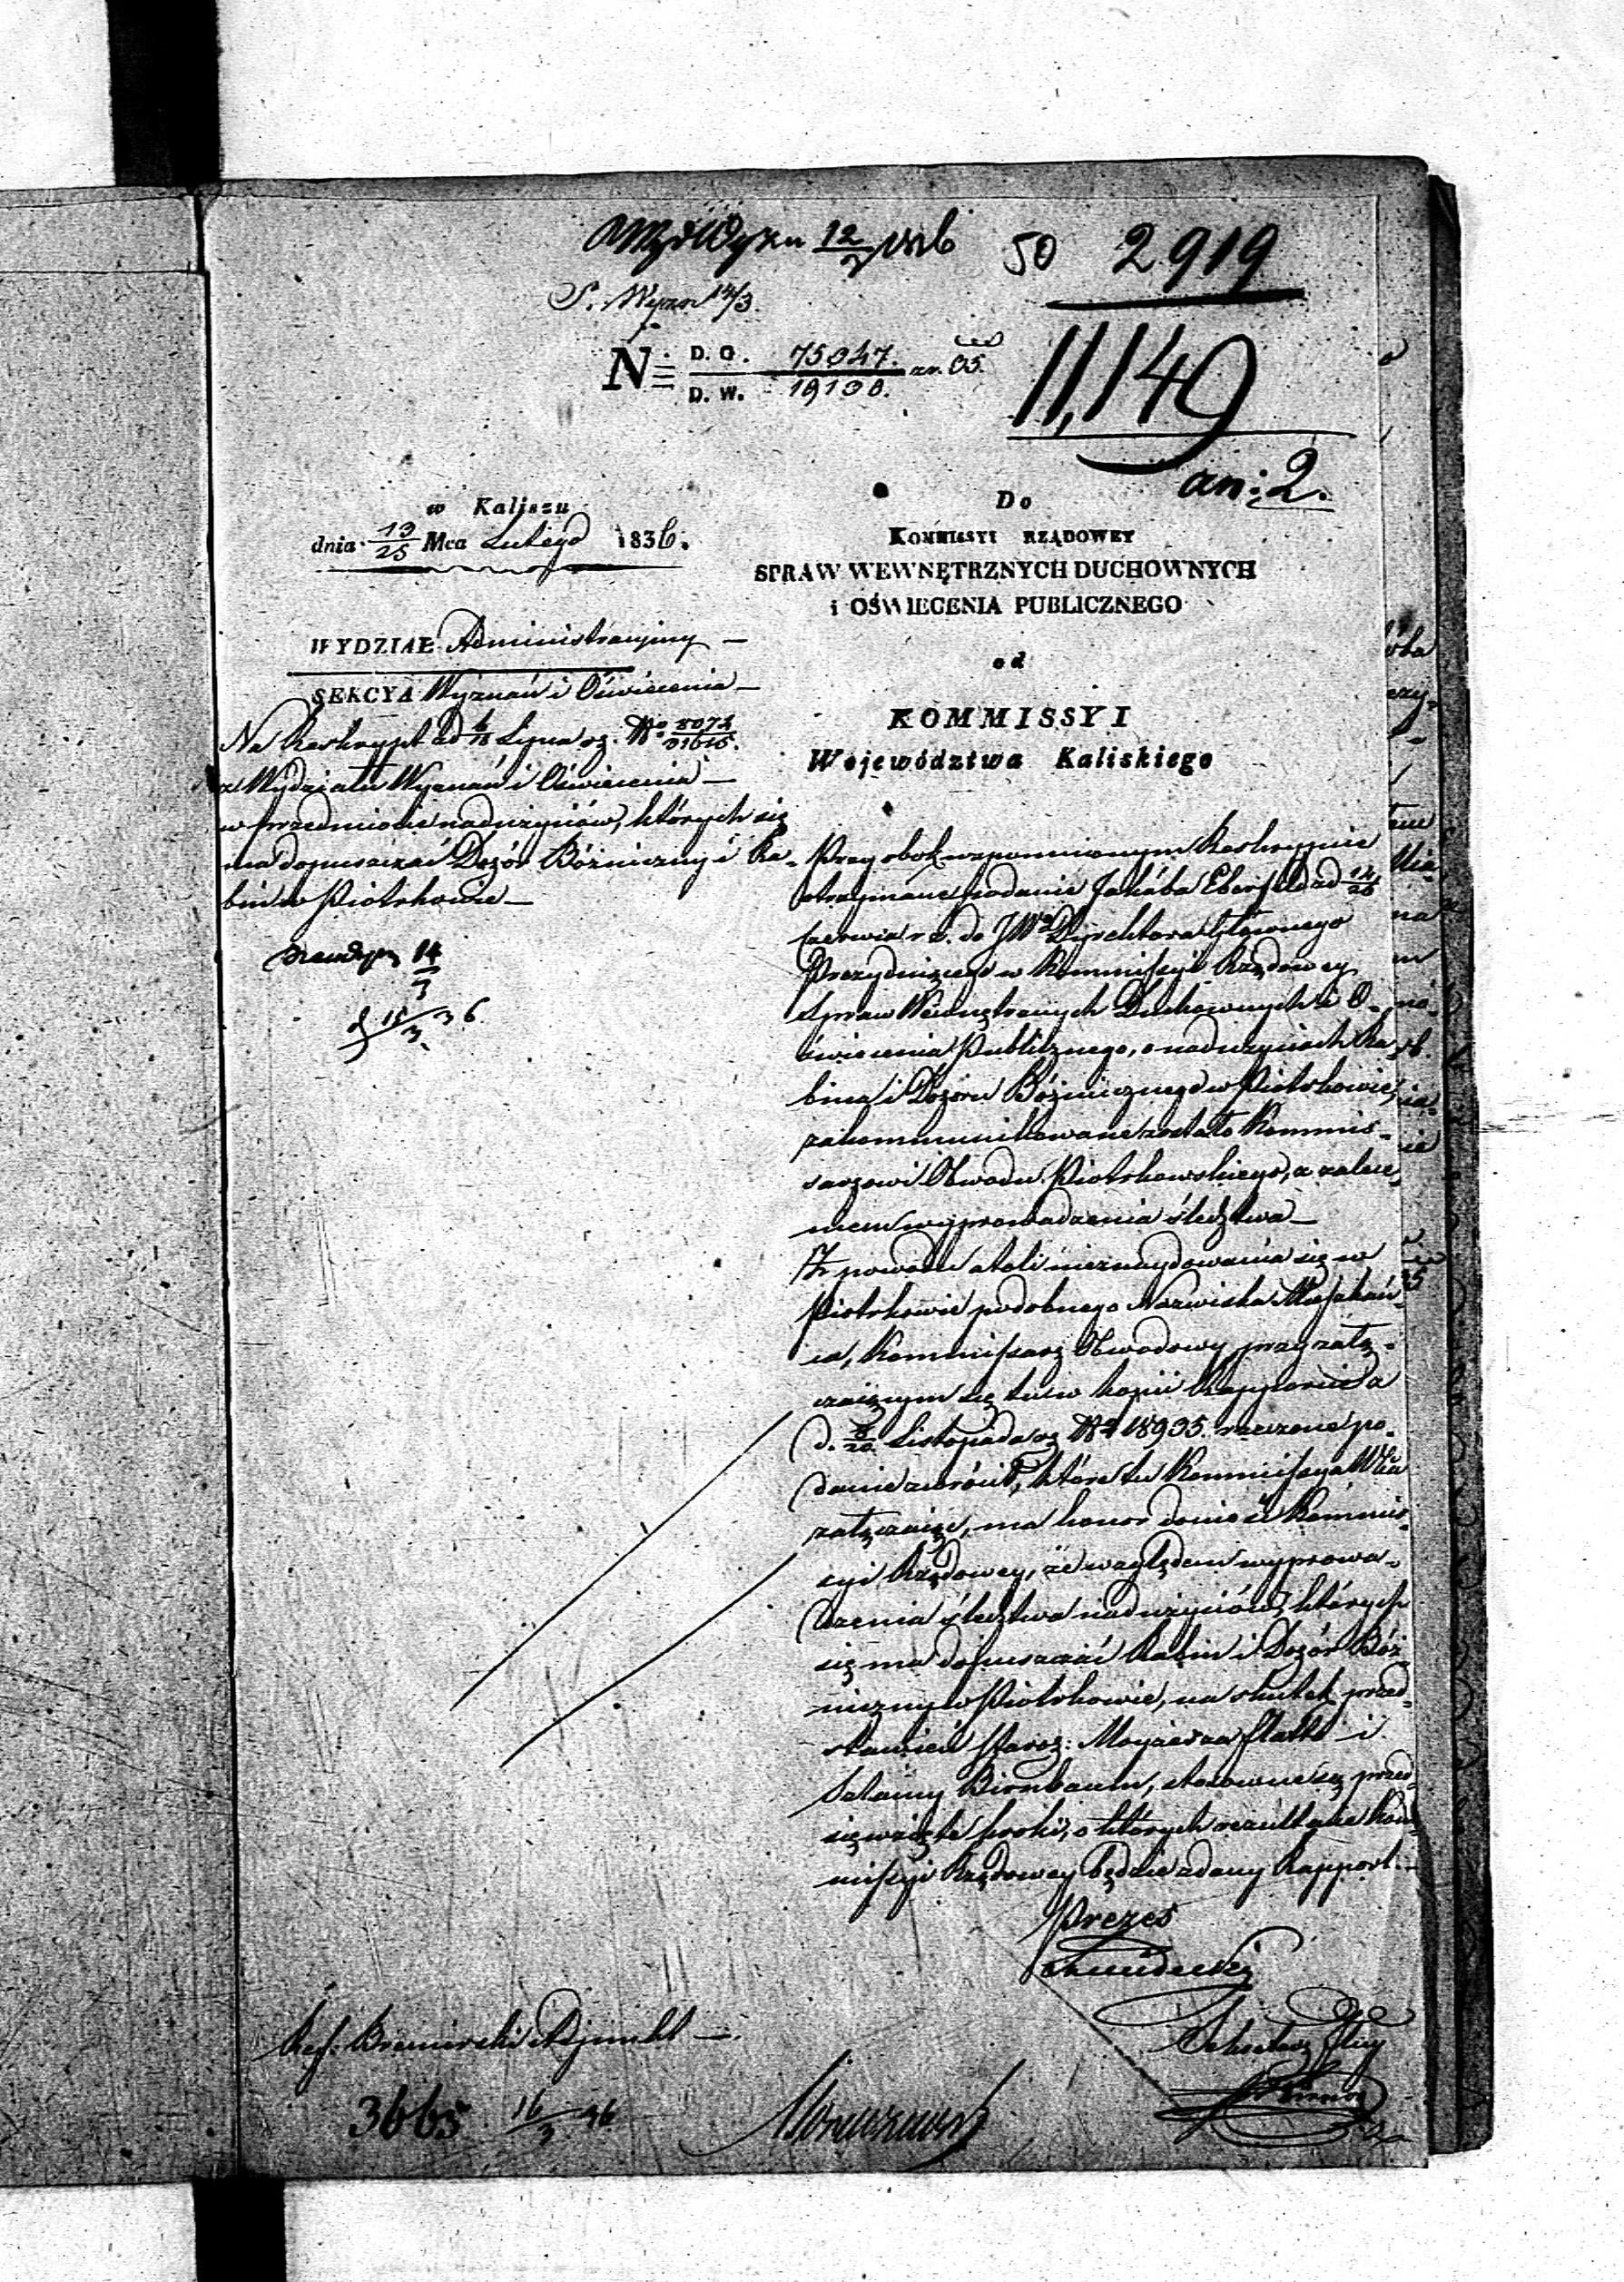 12/3 1836 50 2919
S. Wyzn 14/3.
N D. O. 75047. zr. 35.
D. W. 19138.
11,149
an: 2.
w Kaliszu
dnia 13/25 Mca Lutego 1836.
WYDZIAŁ Administracyiny —
SEKCYA Wyznań i Oświecenia —
Na Reskrypt z d 6/18 Lipca rz. No
z Wydziału Wyznań i Oświecenia —
w przedmiocie nadużyciów, których się
ma dopuszczać Dozór Bóżniczny i Ra-
bin w Piotrkowie —
14/3
15/3 36.
Do
KOMMISSYI RZĄDOWEY
SPRAW WEWNĘTRZNYCH DUCHOWNYCH
i OŚWIECENIA PUBLICZNEGO
od
KOMMISSYI
Województwa Kaliskiego
Przy obok wspomnionym Reskrypcie
otrzymane podanie Jakóba Eberfeld z d 14/26
Czerwca r z. do JWo Dyrektora Głównego
Prezyduiącego w Kommissyi Rządowey
Spraw Wewnętrznych Duchownych i O-
świecenia Publicznego, o nadużyciach Ra-
bina i Dozoru Bóżnicznego w Piotrkowie,
zakommunikowane zostało Kommis-
sarzowi Obwodu Piotrkowskiego, z zalece-
niem wyprowadzenia śledztwa —
Z powodu atoli nieznaydowania się w
Piotrkowie podobnego Nazwiska Mieszkań-
ca, Kommissarz Obwodowy, przy załą-
czaiącym się tu w kopii Rapporcie z
d. 8/20 Listopada rz No 18935. rzeczone po-
danie zwrócił, które tu Kommissya Wdzka
załączaiąc, ma honor donieść Kommis-
syi Rządowey, że względem wyprowa-
dzenia śledztwa nadużyciów, których
się ma dopuszczać Rabin i Dozór Bóż-
niczny w Piotrkowie, na skutek przed-
stawień Staroz: Moyżesza Flatto i
Szlamy Birnbaum, stosowne są przed-
sięwzięte kroki, o których rezultacie Kom-
missyi Rządowey będzie zdany Rapport. —
Prezes
Sekretarz Jlny
Ref. Adjunkt —
3665 16/3 36